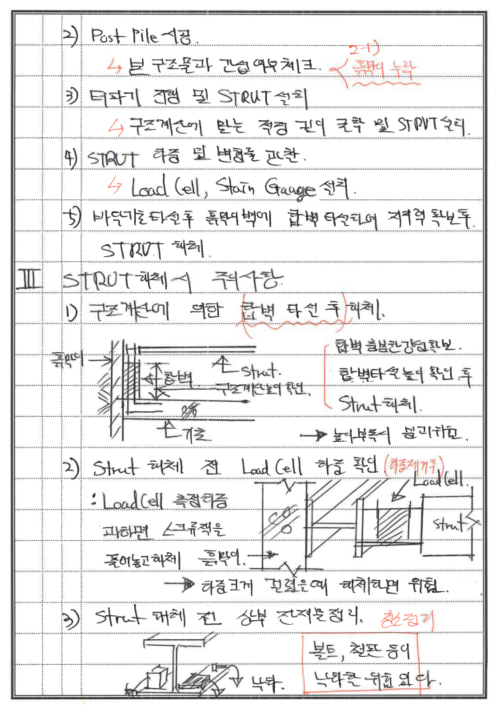 2) Post Pile 시공.
↳ 본 구조물과 간섭여부체크. 2-1) 흙막이 누락
3) 터파기 진행 및 STRUT 설치
↳ 구조계산에 맞는 적정 깊이 굴착 및 STRUT 설치.
4) STRUT 하중 및 변형률 고려한.
↳ Load Cell, Stain Gauge 설치.
5) 바닥기초타설후 흙막이벽에 합벽 타설되어 지지력 확보후
STRUT 해체.
III STRUT 해체시 주의사항
1) 구조계산에 의한 (합벽 타설 후) 해체.
흙막이
합벽
Strut.
구조계산높이 확인.
기초
합벽 충분한강성확보.
합벽타설높이 확인 후
Strut 해체.
→ 높이부족시 붕괴위험.
2) Strut 해체 전 Load Cell 하중 확인 (하중제거후)
: Load Cell 측정하중
과하면 스크류잭을
풀어놓고해체
흙막이.
Load Cell.
Strut
→ 하중크게 걸렸을때 해체하면 위험.
3) Strut 해체 전 상부 잔재물정리. 청소정리
낙하.
볼트, 철판 등이
낙하할 위험 있다.